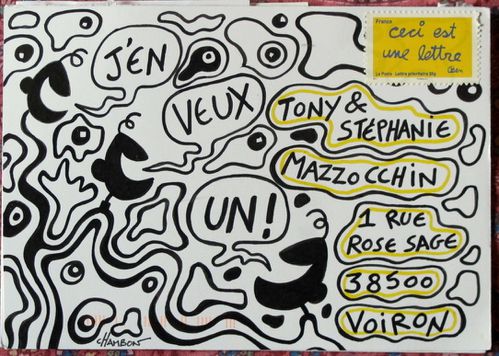 J'EN
VEUX
UN!
France
ceci est
une lettre
Ben
La Poste Lettre prioritaire 20g
TONY &
STÉPHANIE
MAZZOCCHIN
1 RUE
ROSE SAGE
38500
VOIRON
CHAMBON